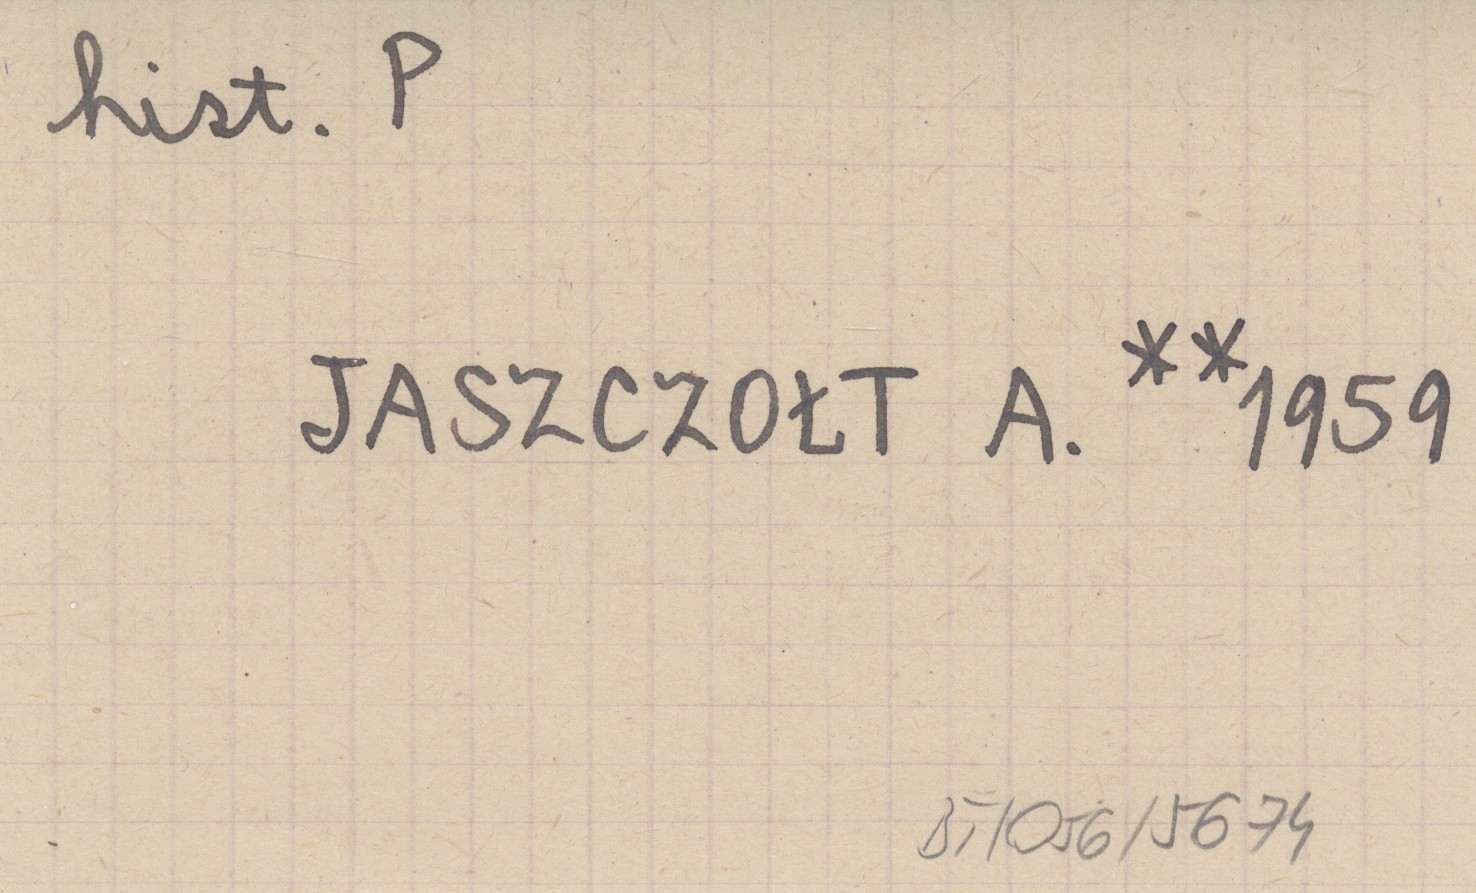 hist. P
JASZCZOŁT A. **1959
BI/056/5674